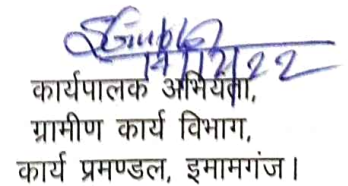 14/12/22
कार्यपालक अभियंता,
ग्रामीण कार्य विभाग,
कार्य प्रमण्डल, इमामगंज।